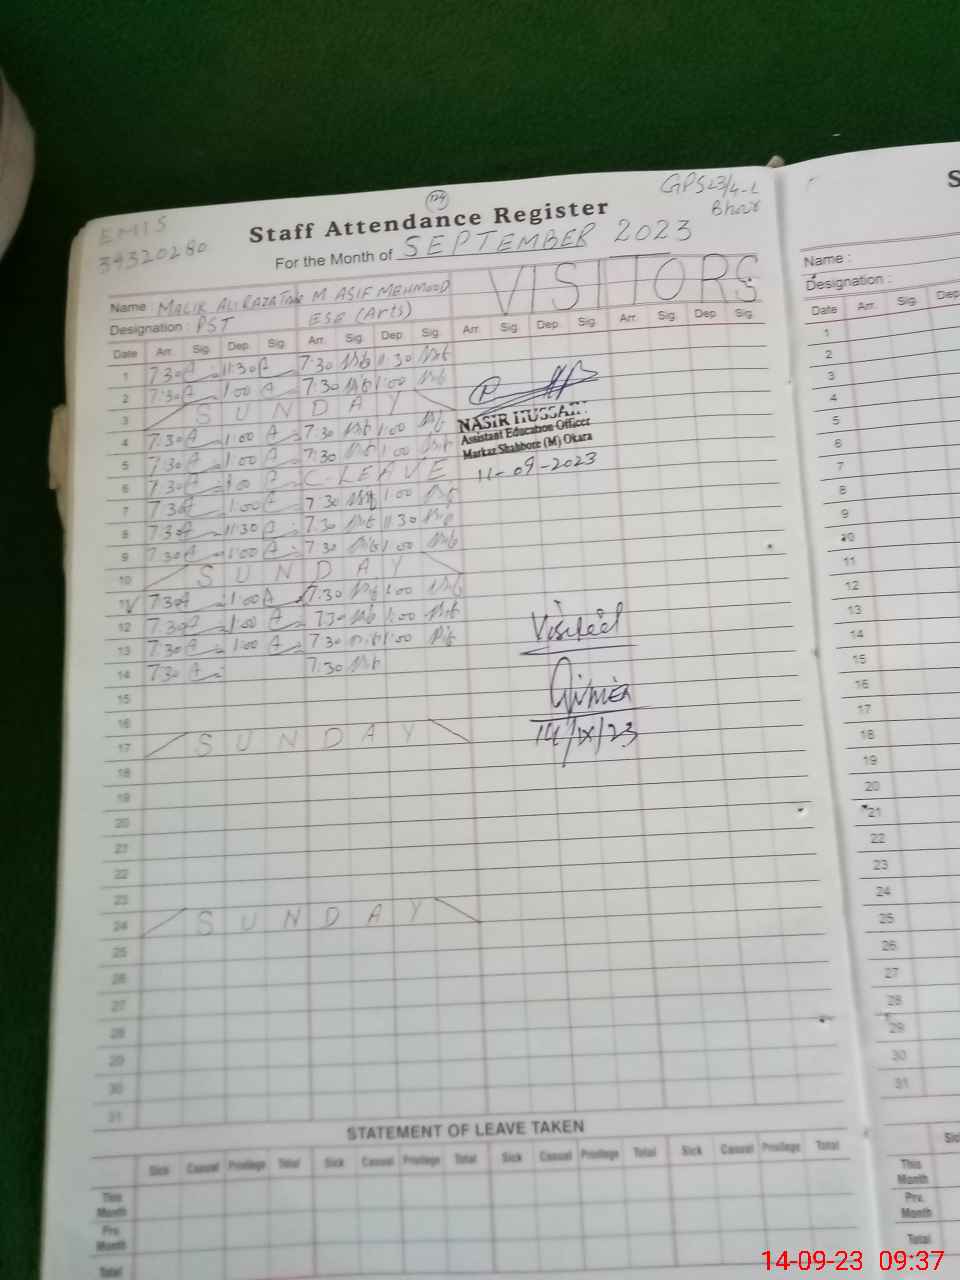 124
GPS 23/4-L
EMIS
Staff Attendance Register
34320280
For the Month of SEPTEMBER 2023
Name : MALIK ALI RAZA M ASIF MEHMOOD VISITORS
Designation : PST ESE (Arts)
Date Arr. Sig. Dep. Sig. Arr. Sig. Dep. Sig. Arr. Sig. Dep. Sig. Arr. Sig. Dep. Sig.
1 7:30 11:30 7:30 11:30
2 7:30 1:00 7:30 1:00
3 SUNDAY
4 7:30 1:00 7:30 1:00
5 7:30 1:00 7:30 1:00
6 7:30 1:00 C-LEAVE
7 7:30 1:00 7:30 1:00
8 7:30 11:30 7:30 11:30
9 7:30 1:00 7:30 1:00
10 SUNDAY
11 7:30 1:00 7:30 1:00
12 7:30 1:00 7:30 1:00
13 7:30 1:00 7:30 1:00
14 7:30 7:30
15
16
17 SUNDAY
18
19
20
21
22
23
24 SUNDAY
25
26
27
28
29
30
31
NASIR HUSSAIN
Assistant Education Officer
Markaz Shahbore (M) Okara
11-09-2023
Visited
14/IX/23
STATEMENT OF LEAVE TAKEN
Sick Casual Privilege Total Sick Casual Privilege Total Sick Casual Privilege Total Sick Casual Privilege Total
This Month
Prv. Month
Total
S
Name :
Designation :
Date Arr. Sig. Dep
1
2
3
4
5
6
7
8
9
10
11
12
13
14
15
16
17
18
19
20
21
22
23
24
25
26
27
28
29
30
31
Sic
This Month
Prv. Month
Total
14-09-23 09:37